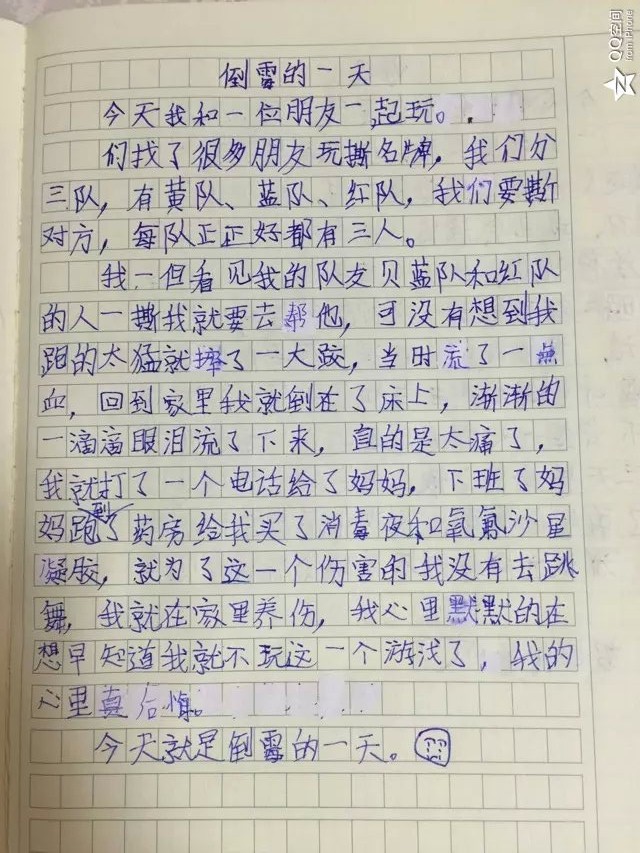 倒霉的一天
今天我和一位朋友一起玩。
们找了很多朋友玩撕名牌，我们分
三队，有黄队、蓝队、红队，我们要撕
对方，每队正正好都有三人。
我一但看见我的队友贝蓝队和红队
的人一撕我就要去帮他，可没有想到我
跑的太猛就摔了一大跤，当时流了一
血，回到家里我就倒在了床上，渐渐的
一滴滴眼泪流了下来，直的是太痛了，
我就打了一个电话给了妈妈，下班了妈
妈跑到了药房给我买了消毒夜和氧氟沙星
凝胶，就为了这一个伤害的我没有去跳
舞，我就在家里养伤，我心里默默的在
想早知道我就不玩这一个游浅了，我的
心里真后悔。
今天就是倒霉的一天。
QQ空间
from iPhone